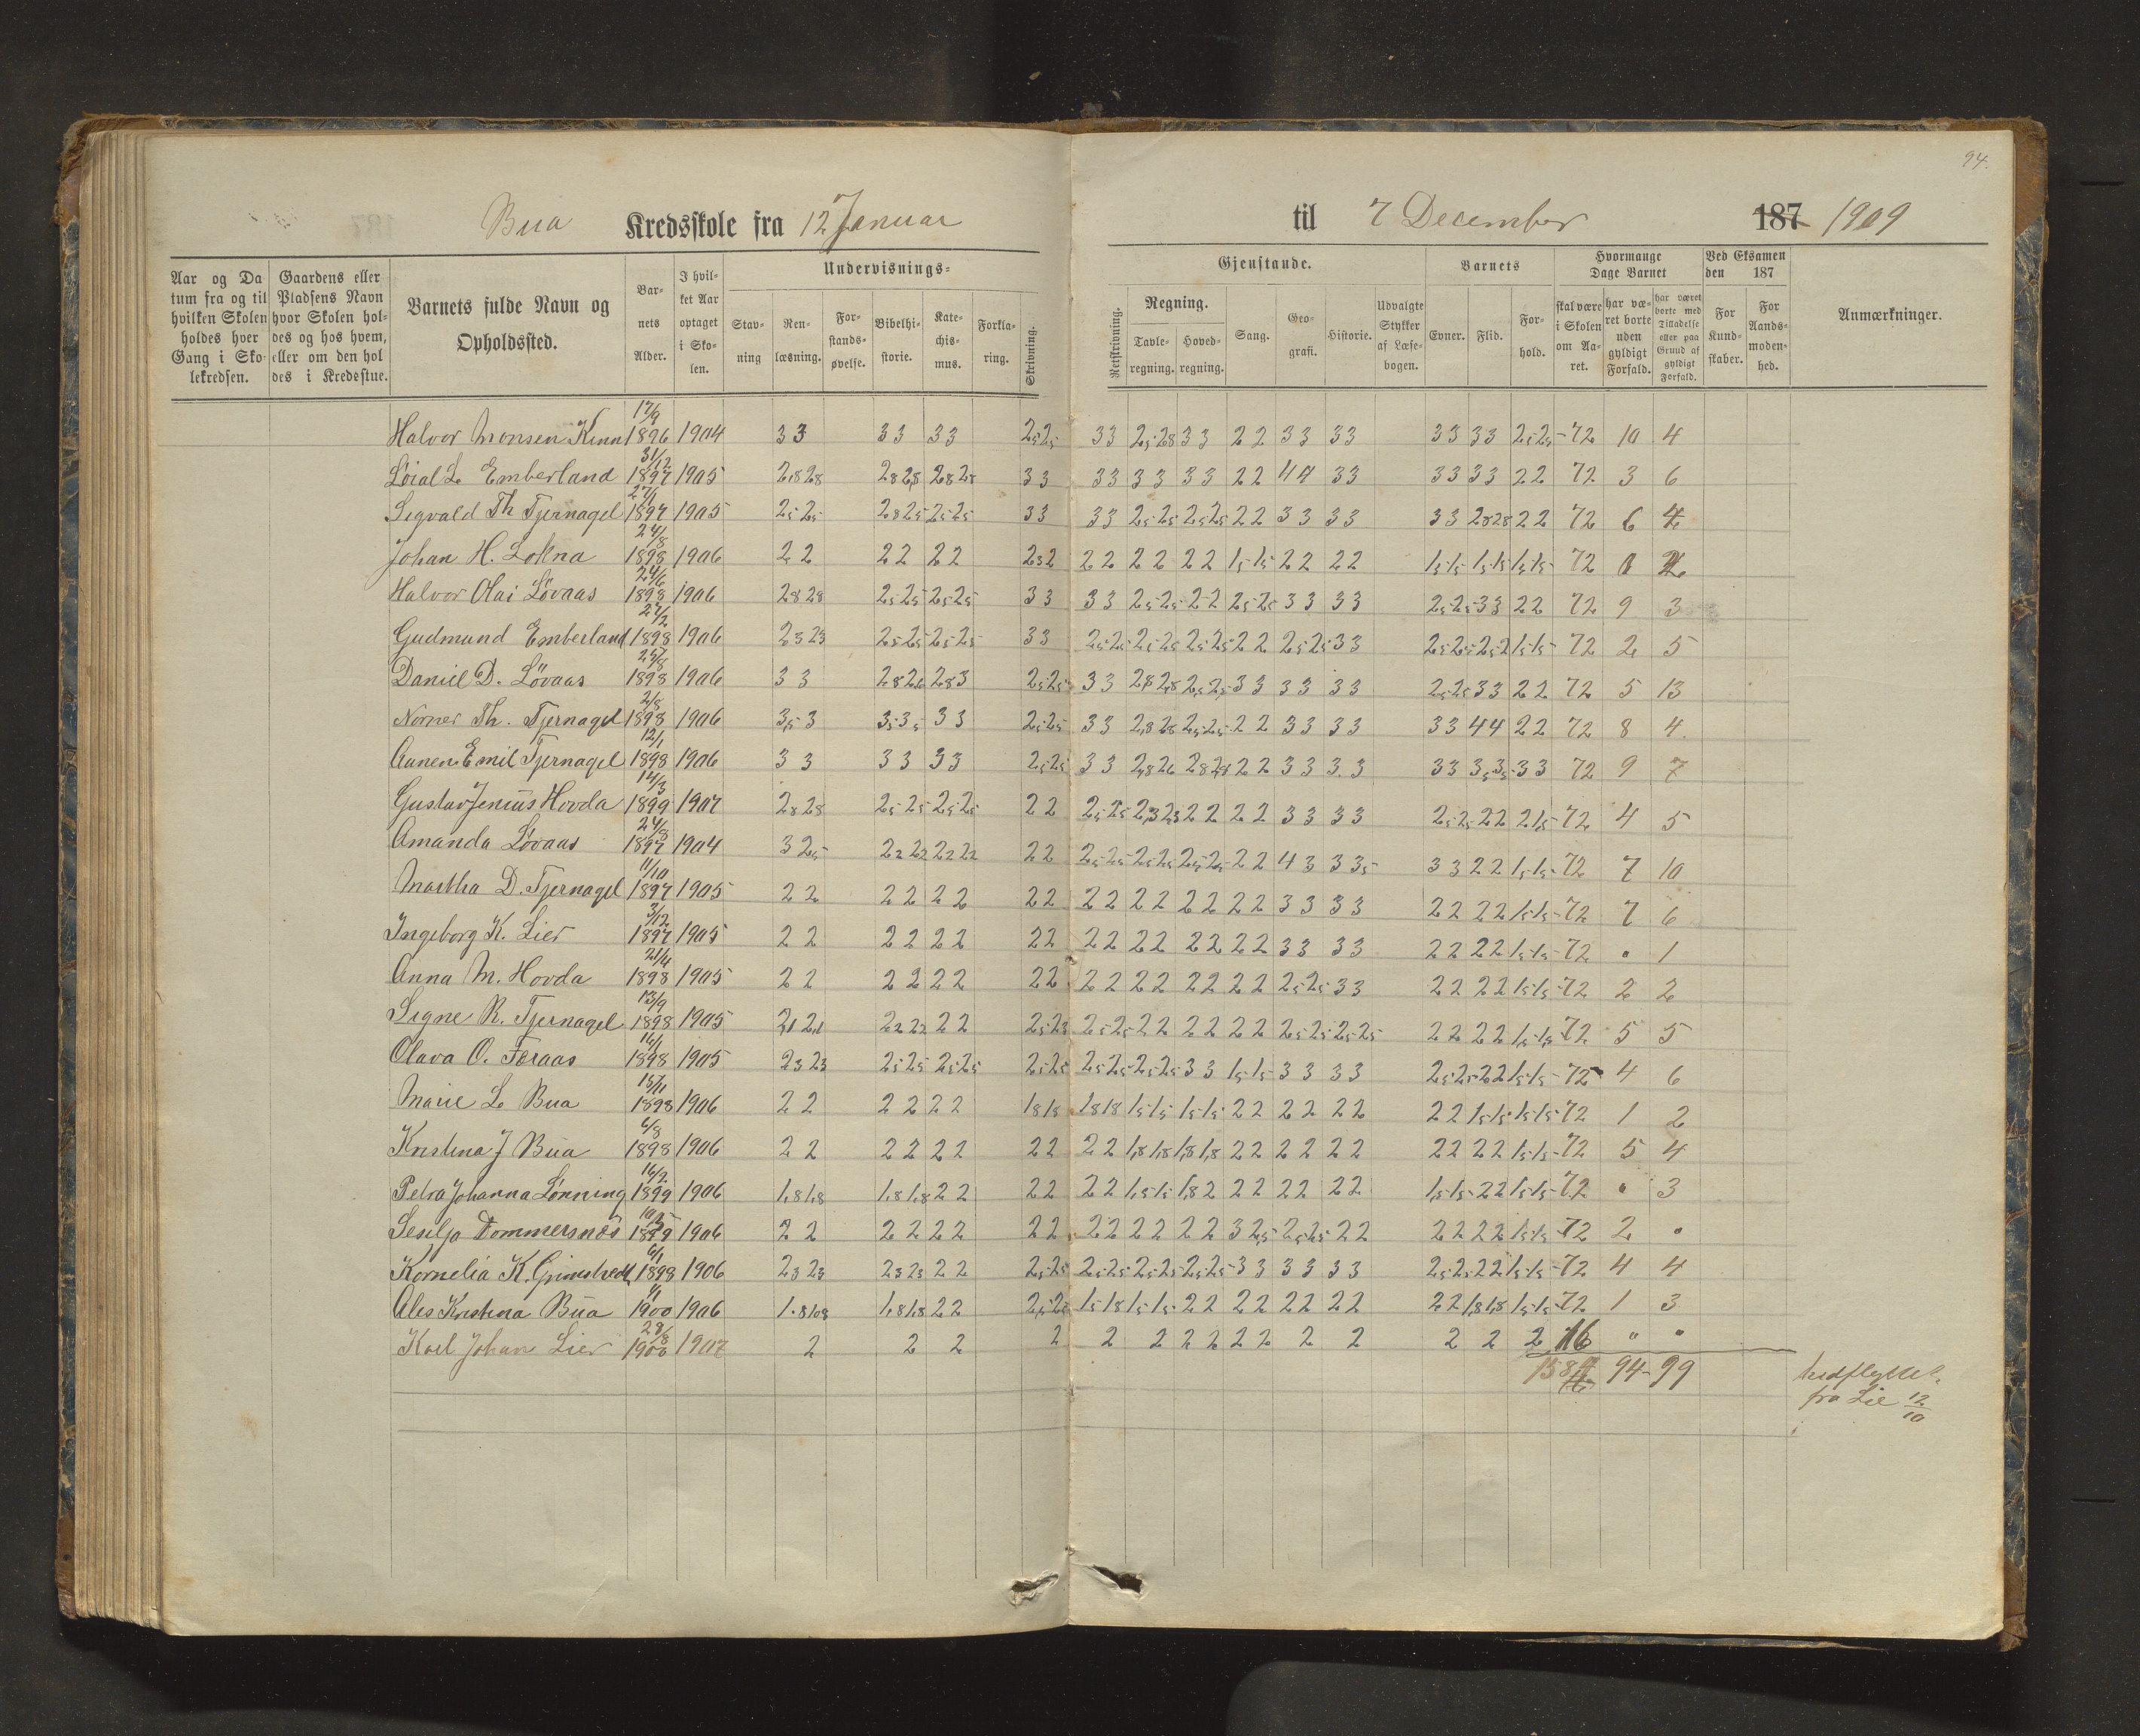 94.
Bua Kredsskole fra 12 Januar til 7 December 187 1909
Aar og Da tum fra og til hvilken Skolen holdes hver Gang i Skolekredsen.
Gaardens eller Pladsens Navn hvor Skolen holdes og hos hvem, eller om den holdes i Kredsstue.
Barnets fulde Navn og Opholdssted.
Barnets Alder.
I hvilket Aar optaget i Skolen.
Undervisnings=
Stavning
Renlæsning.
Forstandsøvelse.
Bibelhistorie.
Katechismus.
Forklaring.
Skrivning.
Gjenstande.
Retskrivning.
Regning.
Tavleregning.
Hovedregning.
Sang.
Geografi.
Historie.
Udvalgte Stykker af Læsebogen.
Barnets
Evner.
Flid.
Forhold.
Hvormange Dage Barnet
skal være i Skolen om Aaret.
har været borte uden gyldigt Forfald.
har været borte med Tilladelse eller paa Grund af gyldigt Forfald.
Ved Eksamen den 187
For Kundskaber.
For Aandsmodenhed.
Anmærkninger.
Halvor Monsen Kinn 17/9 1896 1904 3 3 3 3 3 3 2,5 2,5 3 3 2,5 2,8 3 3 2 2 3 3 3 3 3 3 3 3 2,5 2,5 72 10 4
Loial L Emberland 31/12 1897 1905 2,8 2,8 2,8 2,8 2,8 2,8 3 3 3 3 3 3 3 3 2 2 4 4 3 3 3 3 3 3 2 2 72 3 6
Sigvald Th Tjernagel 27/1 1897 1905 2,5 2,5 2,8 2,5 2,5 2,5 3 3 3 3 2,5 2,5 2,5 2,5 2 2 3 3 3 3 3 3 2,8 2,8 2 2 72 6 4
Johan H. Lokna 24/8 1898 1906 2 2 2 2 2 2 2,3 2 2 2 2 2 2 2 1,5 1,5 2 2 2 2 1,5 1,5 1,5 1,5 1,5 1,5 72
Halvor Olai Lövaas 24/6 1898 1906 2,8 2,8 2,5 2,5 2,5 2,5 3 3 3 3 2,5 2,5 2 2 2,5 2,5 3 3 3 3 2,5 2,5 3 3 2 2 72 9 3
Gudmund Emberland 27/2 1898 1906 2,3 2,3 2,5 2,5 2,5 2,5 3 3 2,5 2,5 2,5 2,5 2,5 2,5 2 2 2,5 2,5 3 3 2,5 2,5 2,5 2 1,5 1,5 72 2 5
Daniel D. Lövaas 25/8 1898 1906 3 3 2,8 2,6 2,8 3 2,5 2,5 3 3 2,8 2,8 2,5 2,5 3 3 3 3 3 3 2,5 2,5 3 3 2 2 72 5 13
Norner Th. Tjernagel 2/8 1898 1906 3,5 3 3,5 3,5 3 3 2,5 2,5 3 3 2,8 2,8 2,5 2,5 2 2 3 3 3 3 3 3 4 4 2 2 72 8 4.
Annen Emil Tjernagel 12/1 1898 1906 3 3 3 3 3 3 2,5 2,5 3 3 2,8 2,6 2,8 2,8 2 2 3 3 3 3 3 3 3,5 3,5 3 3 72 9 7
Gustav Jenius Hovda 14/3 1899 1907 2,8 2,8 2,5 2,5 2,5 2,5 2 2 2,5 2,5 2,3 2,3 2 2 2 2 3 3 3 3 2,5 2,5 2 2 2 1,5 72 4 5
Amanda Lövaas 24/8 1897 1904 3 2,5 2,2 2,2 2,2 2,2 2 2 2,5 2,5 2,5 2,5 2,5 2,5 2 2 4 3 3 3,5 3 3 2 2 1,5 1,5 72 7 10
Martha D. Tjernagel 11/10 1897 1905 2 2 2 2 2 2 2 2 2 2 2 2 2 2 2 2 3 3 3 3 2 2 2 2 1,5 1,5 72 7 6
Ingeborg K. Lier 3/12 1897 1905 2 2 2 2 2 2 2 2 2 2 2 2 2 2 2 2 3 3 3 3 2 2 2 2 1,5 1,5 72 " 1
Anna M. Hovda 21/4 1898 1905 2 2 2 2 2 2 2 2 2 2 2 2 2 2 2 2 2,5 2,5 3 3 2 2 2 2 1,5 1,5 72 2 2
Signe R. Tjernagel 13/9 1898 1905 2,1 2,1 2,2 2,2 2 2 2,5 2,3 2,5 2,5 2 2 2 2 2 2 2,5 2,5 2,5 2,5 2 2 2 2 1,5 1,5 72 5 5
Olava O. Færaas 16/1 1898 1905 2,3 2,3 2,5 2,5 2,5 2,5 2,5 2,5 2,5 2,5 2,5 2,5 3 3 1,5 1,5 3 3 3 3 2,5 2,5 2 2 1,5 1,5 72 4 6
Marie L Bua 15/11 1898 1906 2 2 2 2 2 2 1,8 1,8 1,8 1,8 1,5 1,5 1,5 1,5 2 2 2 2 2 2 2 2 1,5 1,5 1,5 1,5 72 1 2
Kristina J Bua 6/8 1898 1906 2 2 2 2 2 2 2 2 2 2 1,8 1,8 1,8 1,8 2 2 2 2 2 2 2 2 2 2 1,5 1,5 72 5 4
Petra Johanna Lönning 16/2 1899 1906 1,8 1,8 1,8 1,8 2 2 2 2 2 2 1,5 1,5 1,8 2 2 2 2 2 2 2 1,5 1,5 2 2 1,5 1,5 72 " 3
Sesilja Tommersnæs 10/5 1899 1906 2 2 2 2 2 2 2 2 2 2 2 2 2 2 3 2,5 2,5 2,5 2 2 2 2 2 2 1,5 1,5 72 2 "
Kornelia K. Grimstvedt 6/1 1898 1906 2,3 2,3 2,3 2,3 2 2 2,5 2,5 2,5 2,5 2,5 2,5 2,5 2,5 3 3 3 3 3 3 2,5 2,5 2 2 1,5 1,5 72 4 4
Ales Kristina Bua 1900 1906 1,8 1,8 1,8 1,8 2 2 2,5 2,5 1,5 1,8 1,5 1,5 2 2 2 2 2 2 2 2 2 2 1,8 1,8 1,5 1,5 72 1 3
Karl Johan Lier 28/8 1900 1907 2 2 2 2 2 2 2 2 2 2 2 2 2 2 2 16 " "
94 - 99
fra Lie 12/10